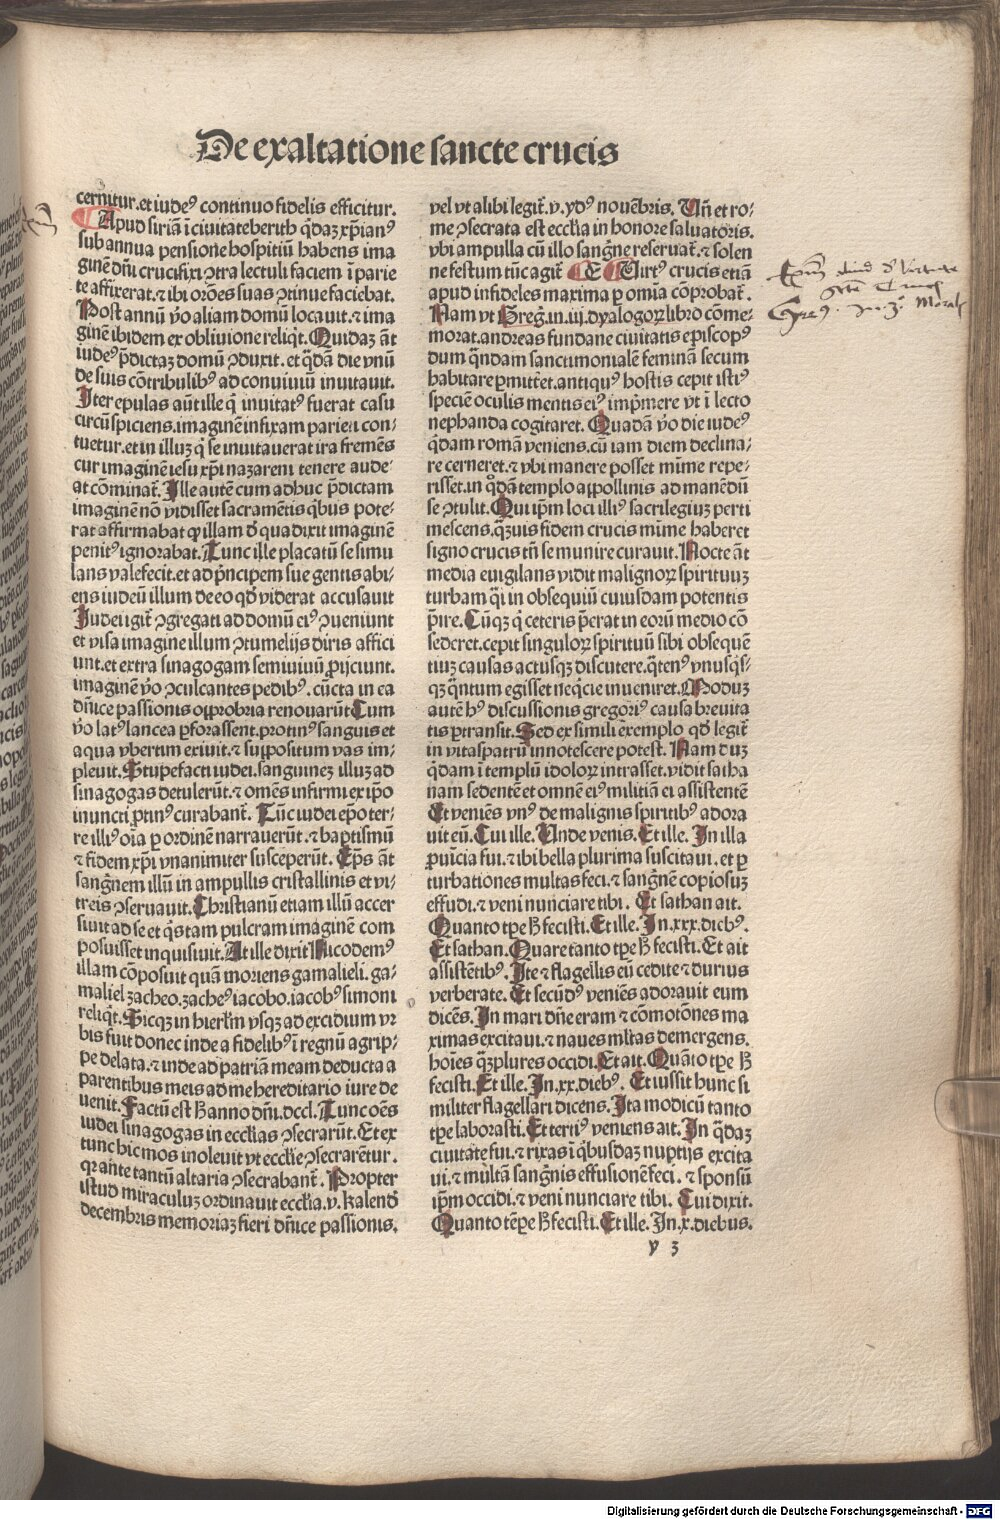 De exaltatione sancte crucis
cernitur. et iudeꝰ continuo fidelis efficitur.
Apud siriā ī ciuitate berith q̄daꝫ xp̄ianꝰ
sub annua pensione hospitiū habens ima
ginē dn̄i crucifixi ꝯtra lectuli faciem ī parie
te affixerat. ⁊ ibi orōes suas ꝯtinue faciebat.
Post annū v̄o aliam domū locauit. ⁊ ima
ginē ibidem ex obliuione reliq̄t. Quidaꝫ āt
iudeꝰ p̄dictaꝫ domū ꝯduxit. et q̄dā die vnū
de suis cōtribulibꝰ ad conuiuiū inuitauit.
Iter epulas aūt ille q̄ inuitatꝰ fuerat casu
circūspiciens. imaginē infixam parieti con⸗
tuetur. et in illuꝫ q̄ se inuitauerat ira fremēs
cur imaginē iesu xp̄i nazareni tenere aude⸗
at cōminat̄. Ille autē cum adhuc p̄dictam
imaginē nō vidisset sacramētis q̄bus pote⸗
rat affirmabat ꝙ illam d̄ qua dixit imaginē
penitꝰ ignorabat. Tunc ille placatū se simu
lans valefecit. et ad p̄ncipem sue gentis abi⸗
ens iudeū illum de eo qd̄ viderat accusauit
Iudei igit̄ ꝯgregati ad domū eiꝰ ꝯueniunt
et visa imagine illum ꝯtumelijs diris affici
unt. et extra sinagogam semiuiuū ꝓijciunt.
imaginē v̄o ꝯculcantes pedibꝰ. cūcta in ea
dn̄ice passionis opprobria renouarūt Cum
v̄o latꝰ lancea ꝑforassent. protinꝰ sanguis et
aqua vbertim exiuit. ⁊ suppositum vas im⸗
pleuit. Stupefacti iudei. sanguineꝫ illuꝫ ad
sinagogas detulerūt. ⁊ omēs infirmi ex ip̄o
inuncti ꝓtinꝰ curabant̄. Tūc iudei ep̄o ter⸗
re illiꝰ oīa ꝑ ordinē narrauerūt. ⁊ baptismū
⁊ fidem xp̄i vnanimiter susceperūt. Ep̄s āt
sangn̄em illū in ampullis cristallinis et vi⸗
treis ꝯseruauit. Christianū etiam illū accer
siuit ad se et q̄s tam pulcram imaginē com
posuisset inquisiuit. At ille dixit Nicodemꝰ
illam cōposuit quā moriens gamalieli. ga⸗
maliel zacheo. zacheꝰ iacobo. iacobꝰ simoni
reliq̄t. Sicqꝫ in hierlm̄ vsqꝫ ad excidium vr
bis fuit donec inde a fidelibꝰ ī regnū agrip⸗
pe delata. ⁊ inde ad patriā meam deducta a
parentibus meis ad me hereditario iure de
uenit. Factū est ħ anno dn̄i. dccl. Tunc oēs
iudei sinagogas in ecclīas ꝯsecrarūt. Et ex
tunc hic mos inoleuit vt ecclīe ꝯsecrarētur.
qr̄ ante tantū altaria ꝯsecrabant̄. Propter
istud miraculuꝫ ordinauit ecclīa. v. kalend̄
decembris memoriaꝫ fieri dn̄ice passionis.
vel vt alibi legit̄. v. ydꝰ nouēbris. Un̄ et ro⸗
me ꝯsecrata est ecclīa in honore saluatoris.
vbi ampulla cū illo sangn̄e reseruat̄. ⁊ solen
ne festum tūc agit̄ E Uirtꝰ crucis etiā
apud infideles maxima ꝑ omīa cōprobat̄.
Nam vt Greg̃. in. iij. dyalogoꝝ libro cōme⸗
morat. andreas fundane ciuitatis episcopꝰ
dum q̄ndam sanctimonialē feminā secum
habitare ꝑmitt̄et. antiquꝰ hostis cepit istiꝰ
speciē oculis mentis eiꝰ imp̄mere vt ī lecto
nephanda cogitaret. Quadā v̄o die iudeꝰ
q̄dam romā veniens. cū iam diem declina⸗
re cerneret. ⁊ vbi manere posset mīme repe⸗
risset. in q̄dā templo appollinis ad manēdū
se ꝯtulit. Qui ip̄m loci illiꝰ sacrilegiuꝫ perti
mescens. q̄ꝫuis fidem crucis mīme haberet
signo crucis tn̄ se munire curauit. Nocte āt
media euigilans vidit malignoꝝ spirituuꝫ
turbam q̄i in obsequiū cuiusdam potentis
p̄ire. Cūqꝫ q̄ ceteris p̄erat in eorū medio cō
sederet. cepit singuloꝝ spirituū sibi obsequē
tiuꝫ causas actusqꝫ discutere. q̄tenꝰ vnusq̄s⸗
qꝫ q̄ntum egisset neq̄cie inueniret. Moduꝫ
autē hꝰ discussionis gregoriꝰ causa breuita
tis ꝑtransit. Sed ex simili exemplo qd̄ legit̄
in vitaspatrū innotescere potest. Nam duꝫ
q̄dam ī templū idoloꝝ intrasset. vidit satha
nam sedentē et omnē eiꝰ militiā ei assistentē
Et veniēs vnꝰ de malignis spiritibꝰ adora
uit eū. Cui ille. Unde venis. Et ille. In illa
ꝓuīcia fui. ⁊ ibi bella plurima suscitaui. et ꝑ
turbationes multas feci. ⁊ sangn̄ē copiosuꝫ
effudi. ⁊ veni nunciare tibi. Et sathan ait.
Quanto tꝑe ħ fecisti. Et ille. In. xxx. diebꝰ.
Et sathan. Quare tanto tꝑe ħ fecisti. Et ait
assistētibꝰ. Ite ⁊ flagellis eū cedite ⁊ durius
verberate. Et secūdꝰ veniēs adorauit eum
dicēs. In mari dn̄e eram ⁊ cōmotōnes ma
ximas excitaui. ⁊ naues ml̄tas demergens.
hoīes q̄ꝫplures occidi. Et ait. Quāto tꝑe ħ
fecisti. Et ille. In. xx. diebꝰ. Et iussit hunc si
militer flagellari dicens. Ita modicū tanto
tꝑe laborasti. Et tertiꝰ veniens ait. In q̄daꝫ
ciuitate fui. ⁊ rixas ī q̄busdaꝫ nuptijs excita
ui. ⁊ mul̄tā sangn̄is effusionē feci. ⁊ sponsū
ip̄m occidi. ⁊ veni nunciare tibi. Cui dixit.
Quanto tēꝑe ħ fecisti. Et ille. In. x. diebus.
y 3
Digitalisierung gefördert durch die Deutsche Forschungsgemeinschaft - DFG